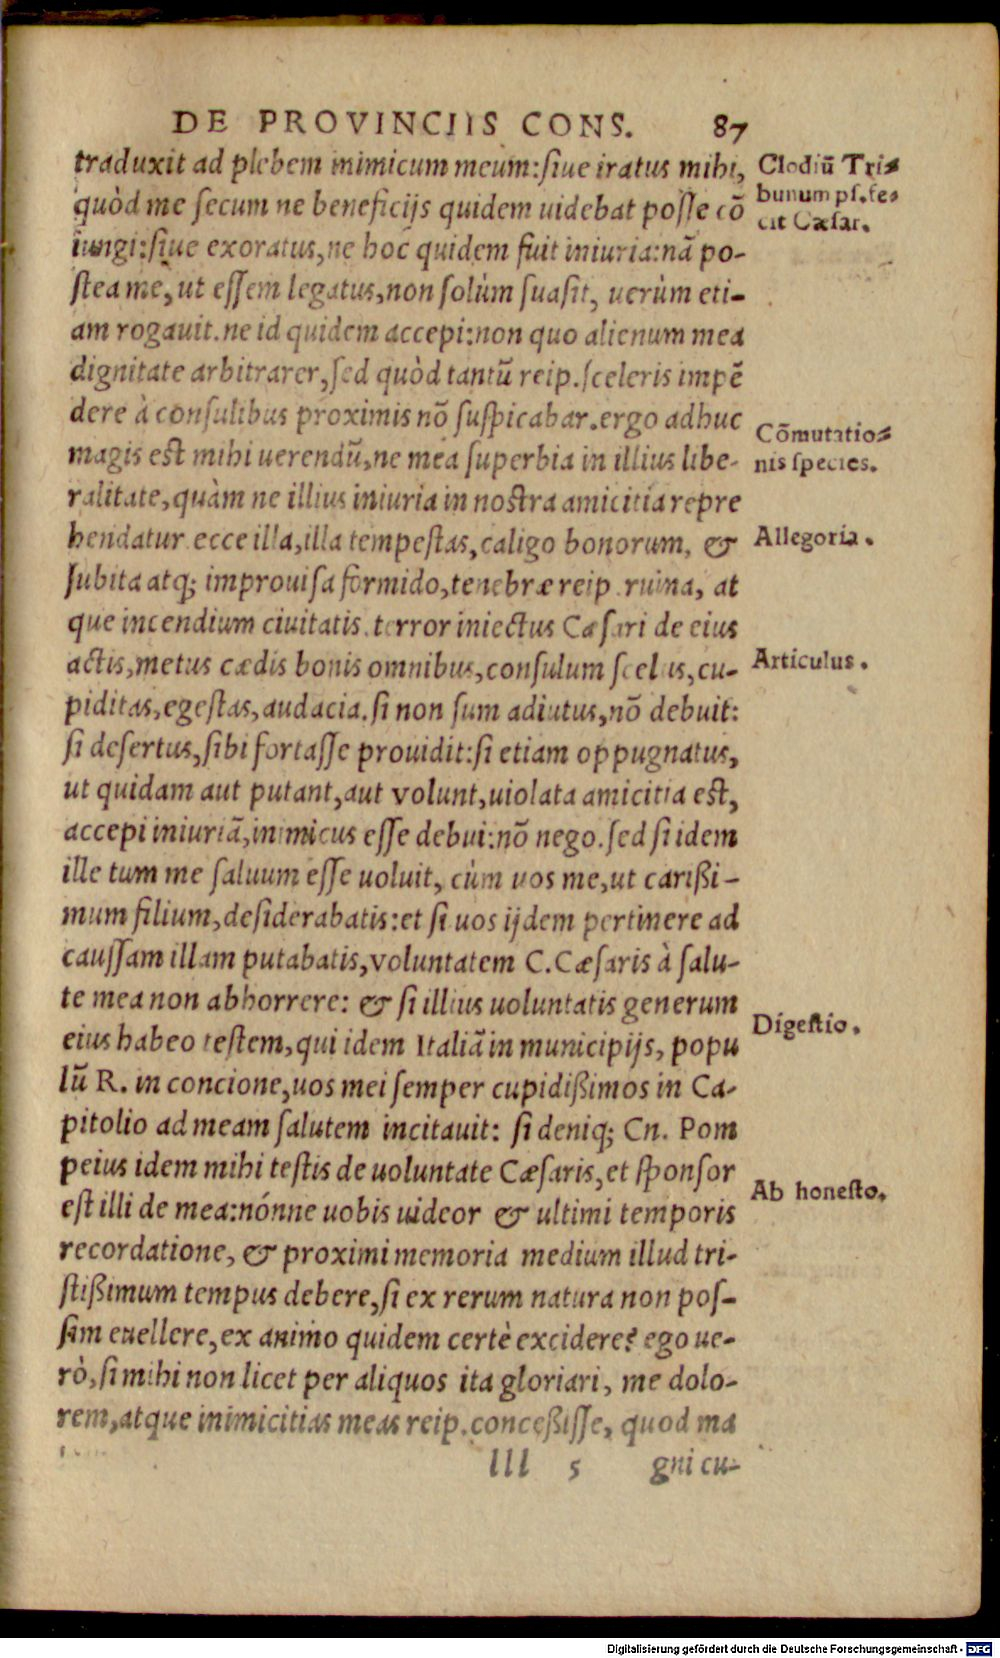 DE PROVINCIIS CONS. 87
traduxit ad plebem inimicum meum:siue iratus mihi,
quòd me secum ne beneficijs quidem uidebat posse cō
iungi:siue exoratus,ne hoc quidem fuit iniuria:nā po-
stea me,ut essem legatus,non solùm suasit, uerùm eti-
am rogauit.ne id quidem accepi:non quo alienum mea
dignitate arbitrarer,sed quòd tantū reip.sceleris impē
dere à consulibus proximis nō suspicabar.ergo adhuc
magis est mihi uerendū,ne mea superbia in illius libe-
ralitate,quàm ne illius iniuria in nostra amicitia repre
hendatur.ecce illa,illa tempestas,caligo bonorum, &
subita atq; improuisa formido,tenebræ reip.ruina, at
que incendium ciuitatis.terror iniectus Cæsari de eius
actis,metus cædis bonis omnibus,consulum scelus,cu-
piditas,egestas,audacia.si non sum adiutus,nō debuit:
si desertus,sibi fortasse prouidit:si etiam oppugnatus,
ut quidam aut putant,aut volunt,uiolata amicitia est,
accepi iniuriā,inimicus esse debui:nō nego.sed si idem
ille tum me saluum esse uoluit, cùm uos me,ut carißi-
mum filium,desiderabatis:et si uos ijdem pertinere ad
caussam illam putabatis,voluntatem C.Cæsaris à salu-
te mea non abhorrere: & si illius uoluntatis generum
eius habeo testem,qui idem Italiā in municipijs, popu
lū R. in concione,uos mei semper cupidißimos in Ca-
pitolio ad meam salutem incitauit: si deniq; Cn. Pom
peius idem mihi testis de uoluntate Cæsaris,et sponsor
est illi de mea:nónne uobis uideor & ultimi temporis
recordatione, & proximi memoria medium illud tri-
stißimum tempus debere,si ex rerum natura non pos-
sim euellere,ex animo quidem certè excidere? ego ue-
rò,si mihi non licet per aliquos ita gloriari, me dolo-
rem,atque inimicitias meas reip.conceßisse, quod ma
lll 5 gni cu-
Clodiū Tri-
bunum pl.fe-
cit Cæsar.
Cōmutatio-
nis species.
Allegoria.
Articulus.
Digestio.
Ab honesto.
Digitalisierung gefördert durch die Deutsche Forschungsgemeinschaft - DFG